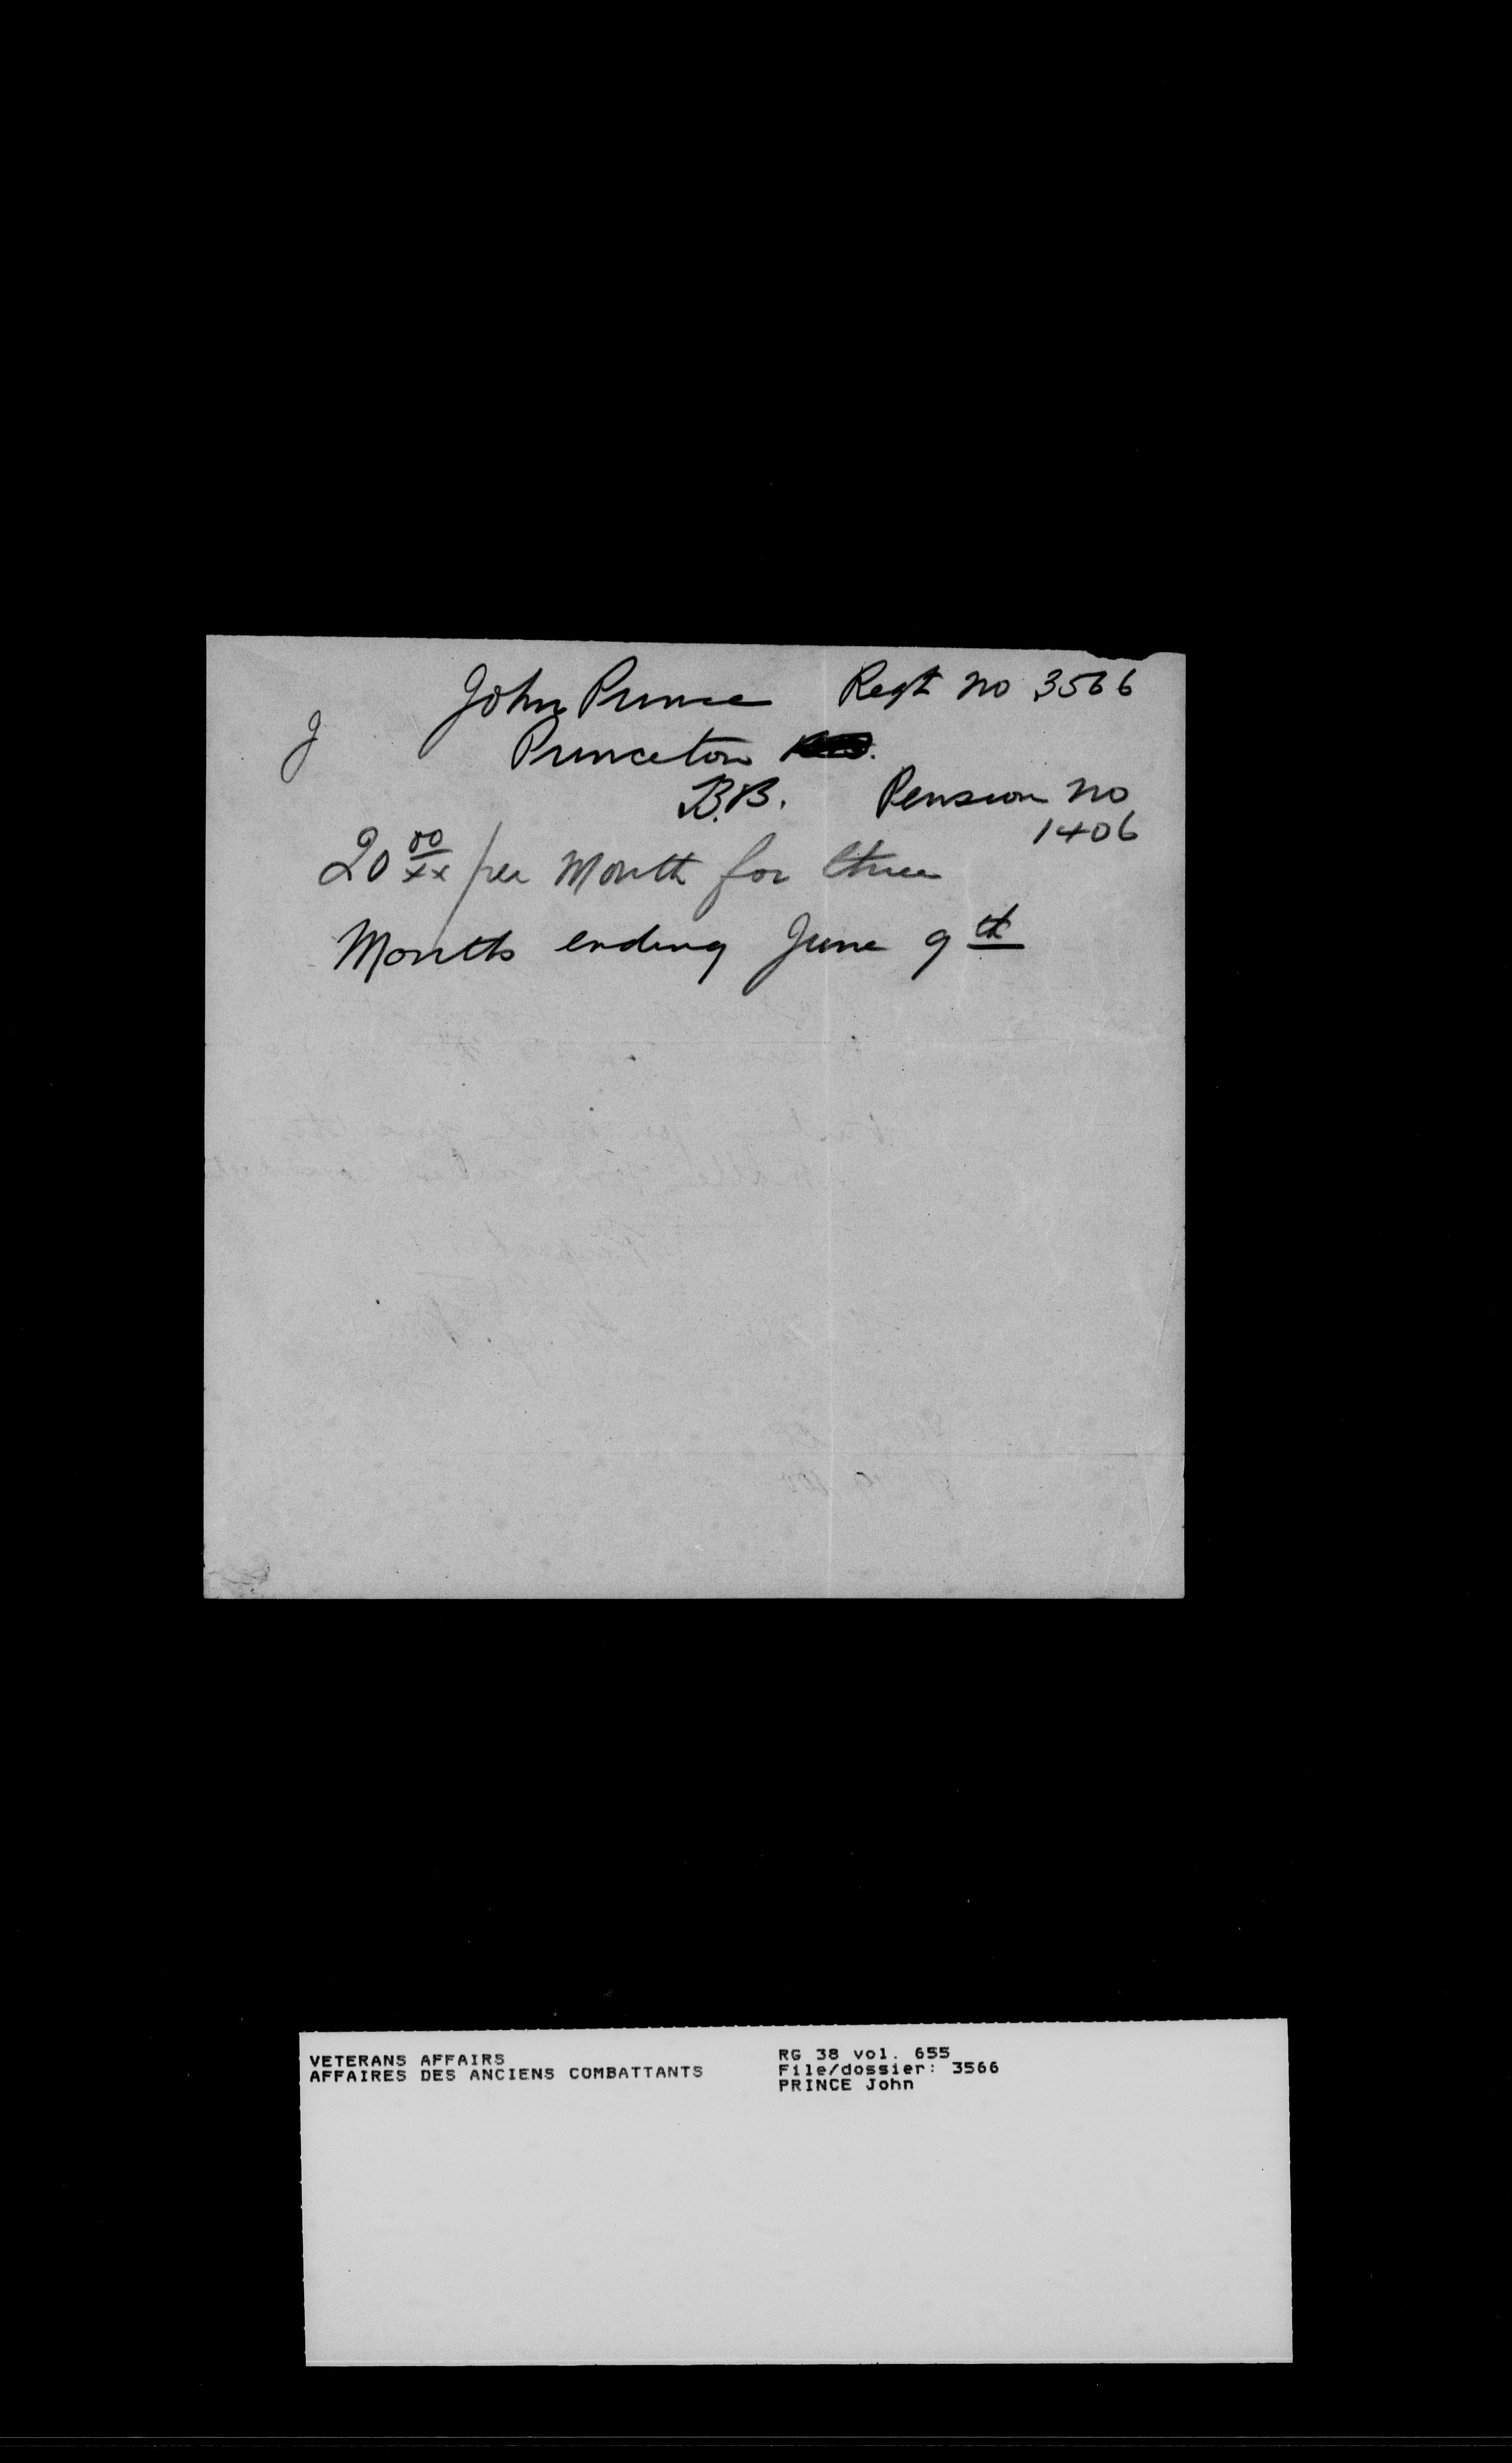 John Prince Regt no 3566
J
Princeton
B.B. Pension no
1406
20 00/xx per Month for three
Months ending June 9th
VETERANS AFFAIRS
AFFAIRES DES ANCIENS COMBATTANTS
RG 38 vol. 655
File/dossier: 3566
PRINCE John